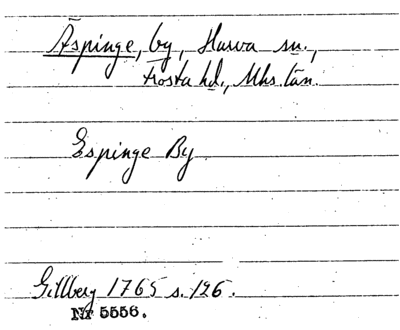 Äspinge, by, Hurva sn.,
Frosta hd., Mhs. län.
Espinge By
Gillberg 1765 s. 126.
Nr 5556.